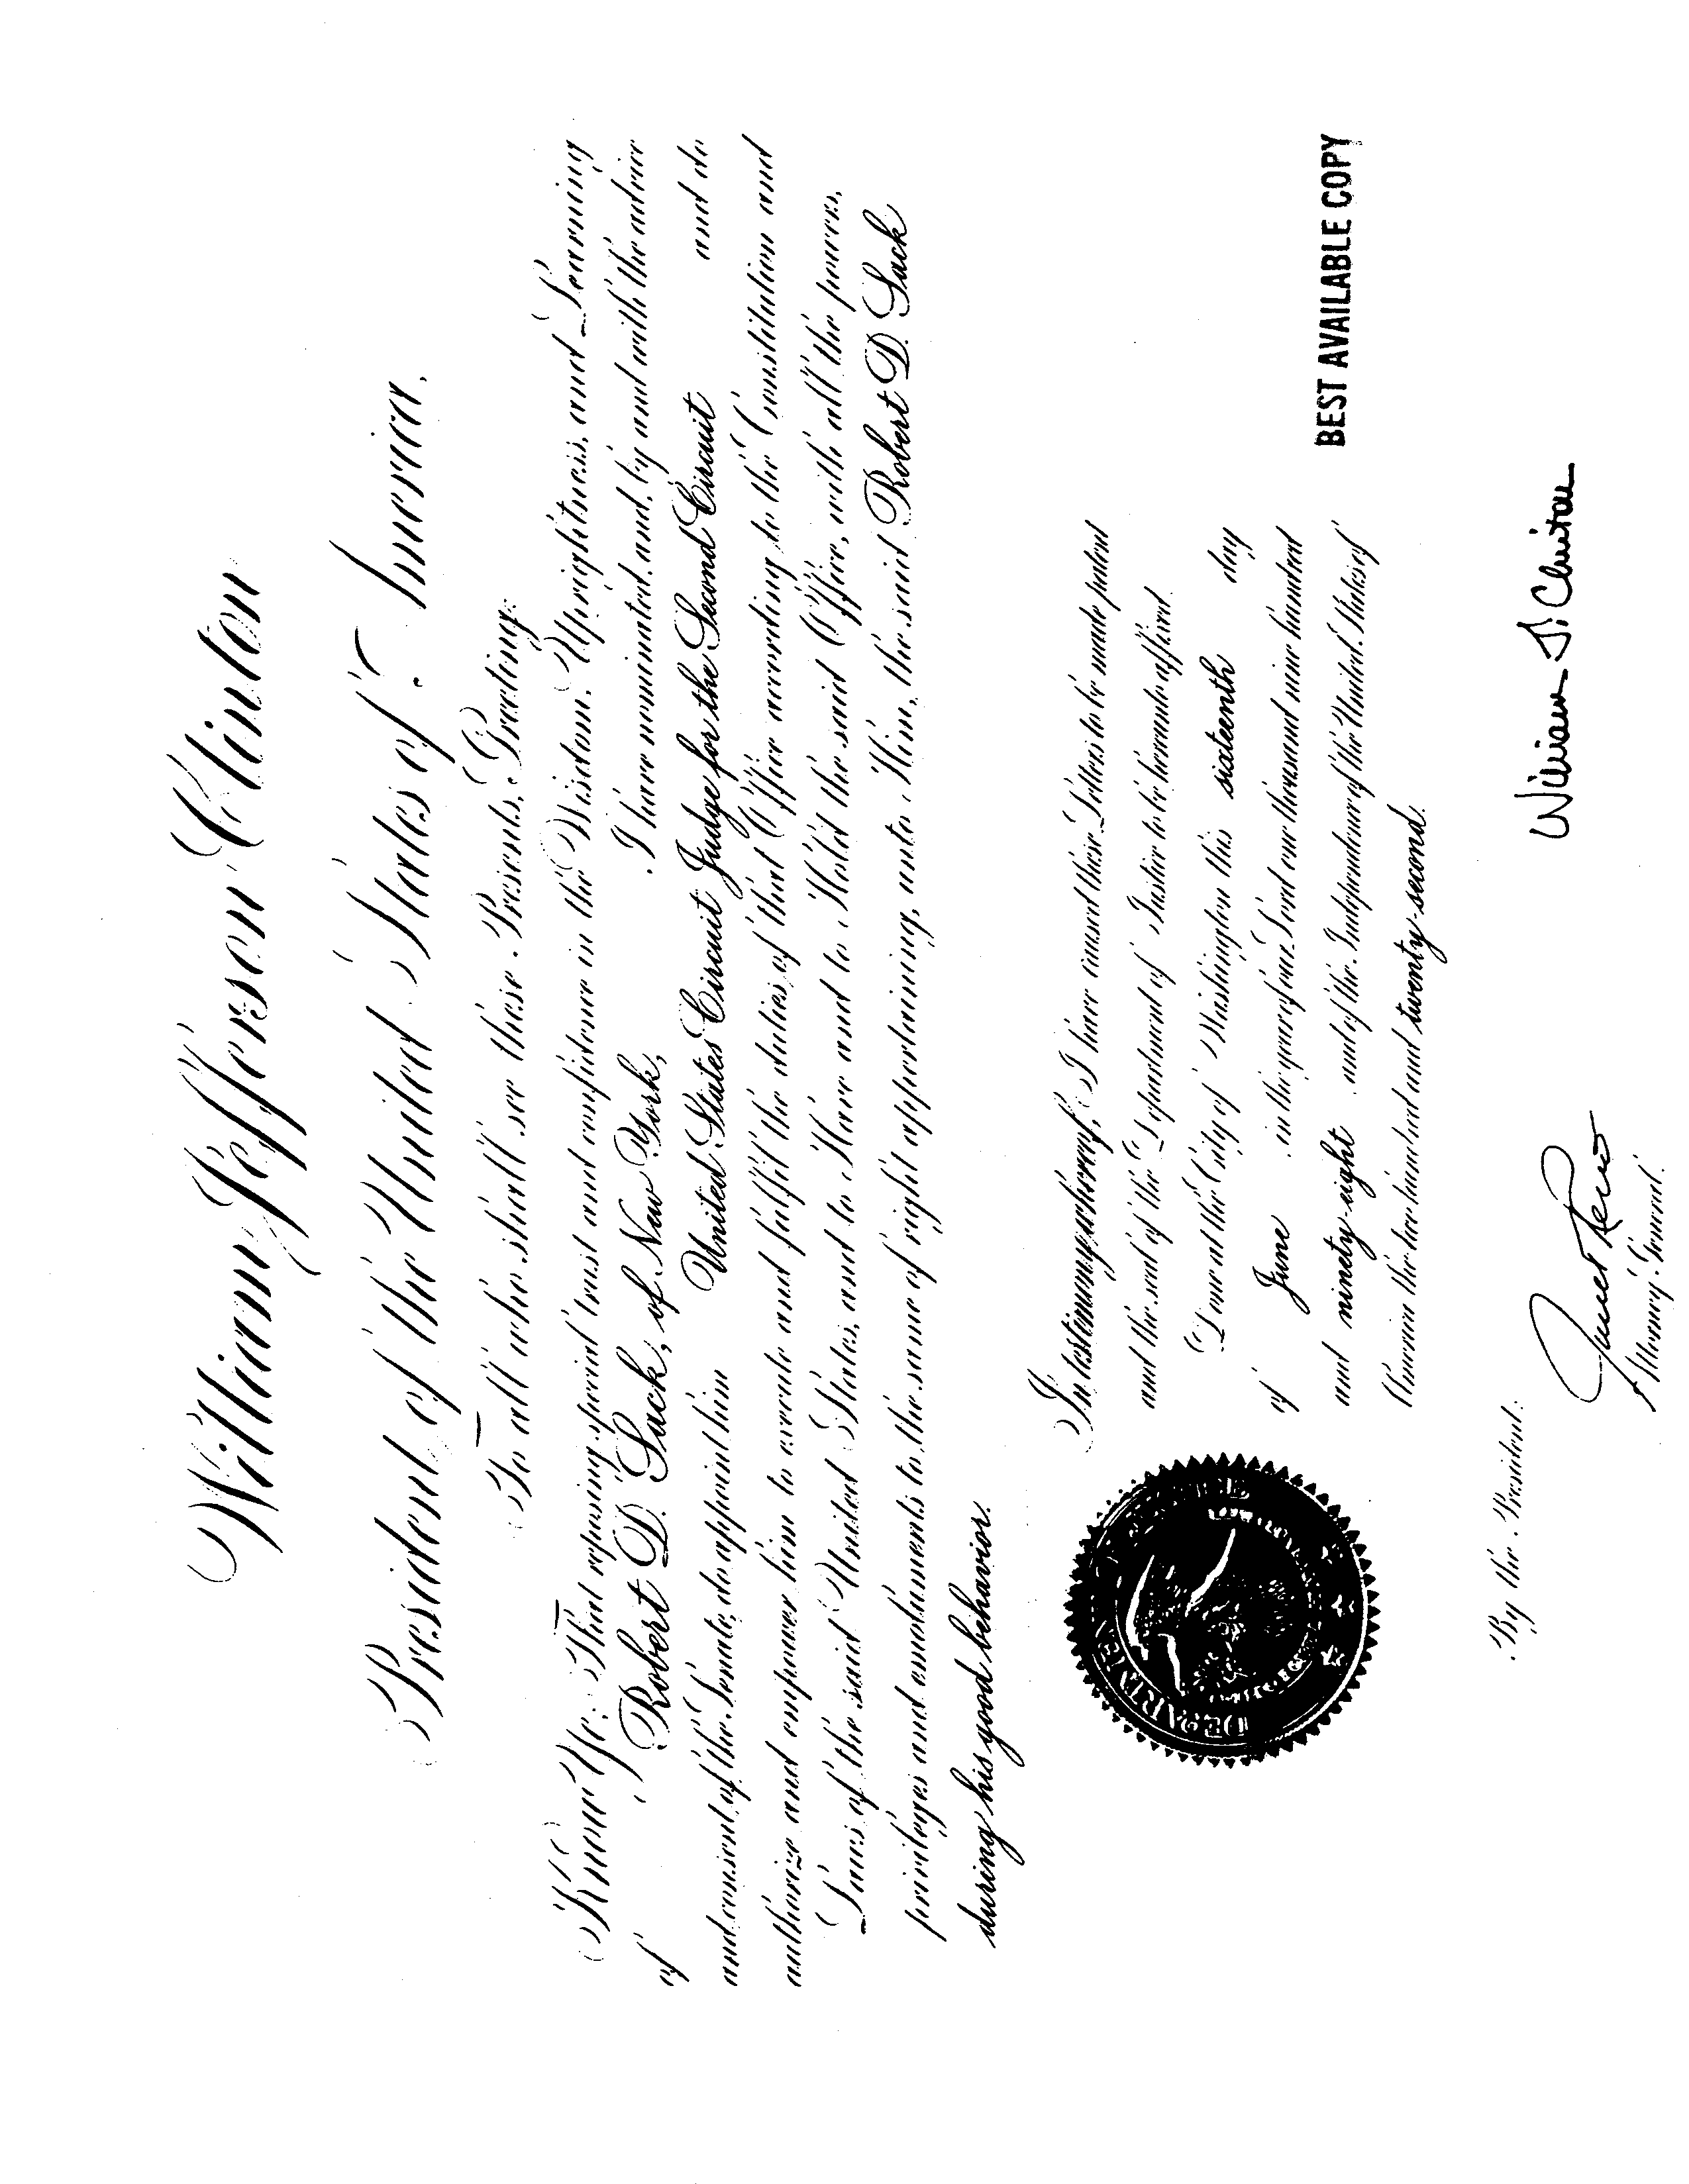 William Jefferson Clinton
President of the United States of America.
To all who shall see these Presents, Greeting:
Know Ye: That reposing special trust and confidence in the Wisdom, Uprightness, and Learning
of Robert D. Sack, of New York, I have nominated, and, by and with the advice
and consent of the Senate, do appoint him United States Circuit Judge for the Second Circuit and do
authorize and empower him to execute and fulfil the duties of that Office according to the Constitution and
Laws of the said United States, and to Have and to Hold the said Office, with all the powers,
privileges and emoluments to the same of right appertaining, unto Him, the said Robert D. Sack
during his good behavior.
In testimony whereof, I have caused these Letters to be made patent
and the seal of the Department of Justice to be hereunto affixed.
Done at the City of Washington this sixteenth day
of June in the year of our Lord one thousand nine hundred
and ninety-eight and of the Independence of the United States of
America the two hundred and twenty-second.
BEST AVAILABLE COPY
DEPARTMEN
William J. Clinton
By the President:
Janet Reno
Attorney General.